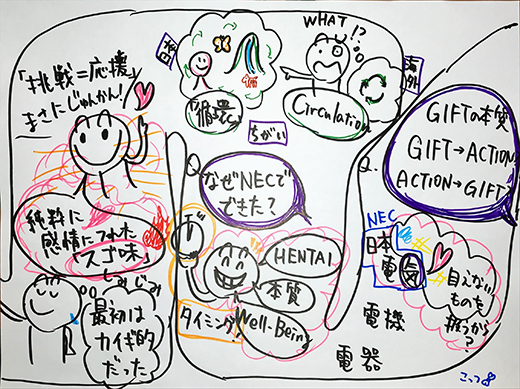 「挑戦=応援」
まさにじゅんかん!
純粋に
感情にふれた
「スゴ味」
しみじみ
最初は
カイギ的
だった
日本
循環
WHAT!?
海外
Circulation
ちがい
Q.
なぜNECで
できた?
HENTAI
本質
Well-Being
タイミング!!
Q.
GIFTの本質
GIFT→ACTION
ACTION→GIFT
NEC
日本
電気
目えない
ものを
扱うから?
電機
電器